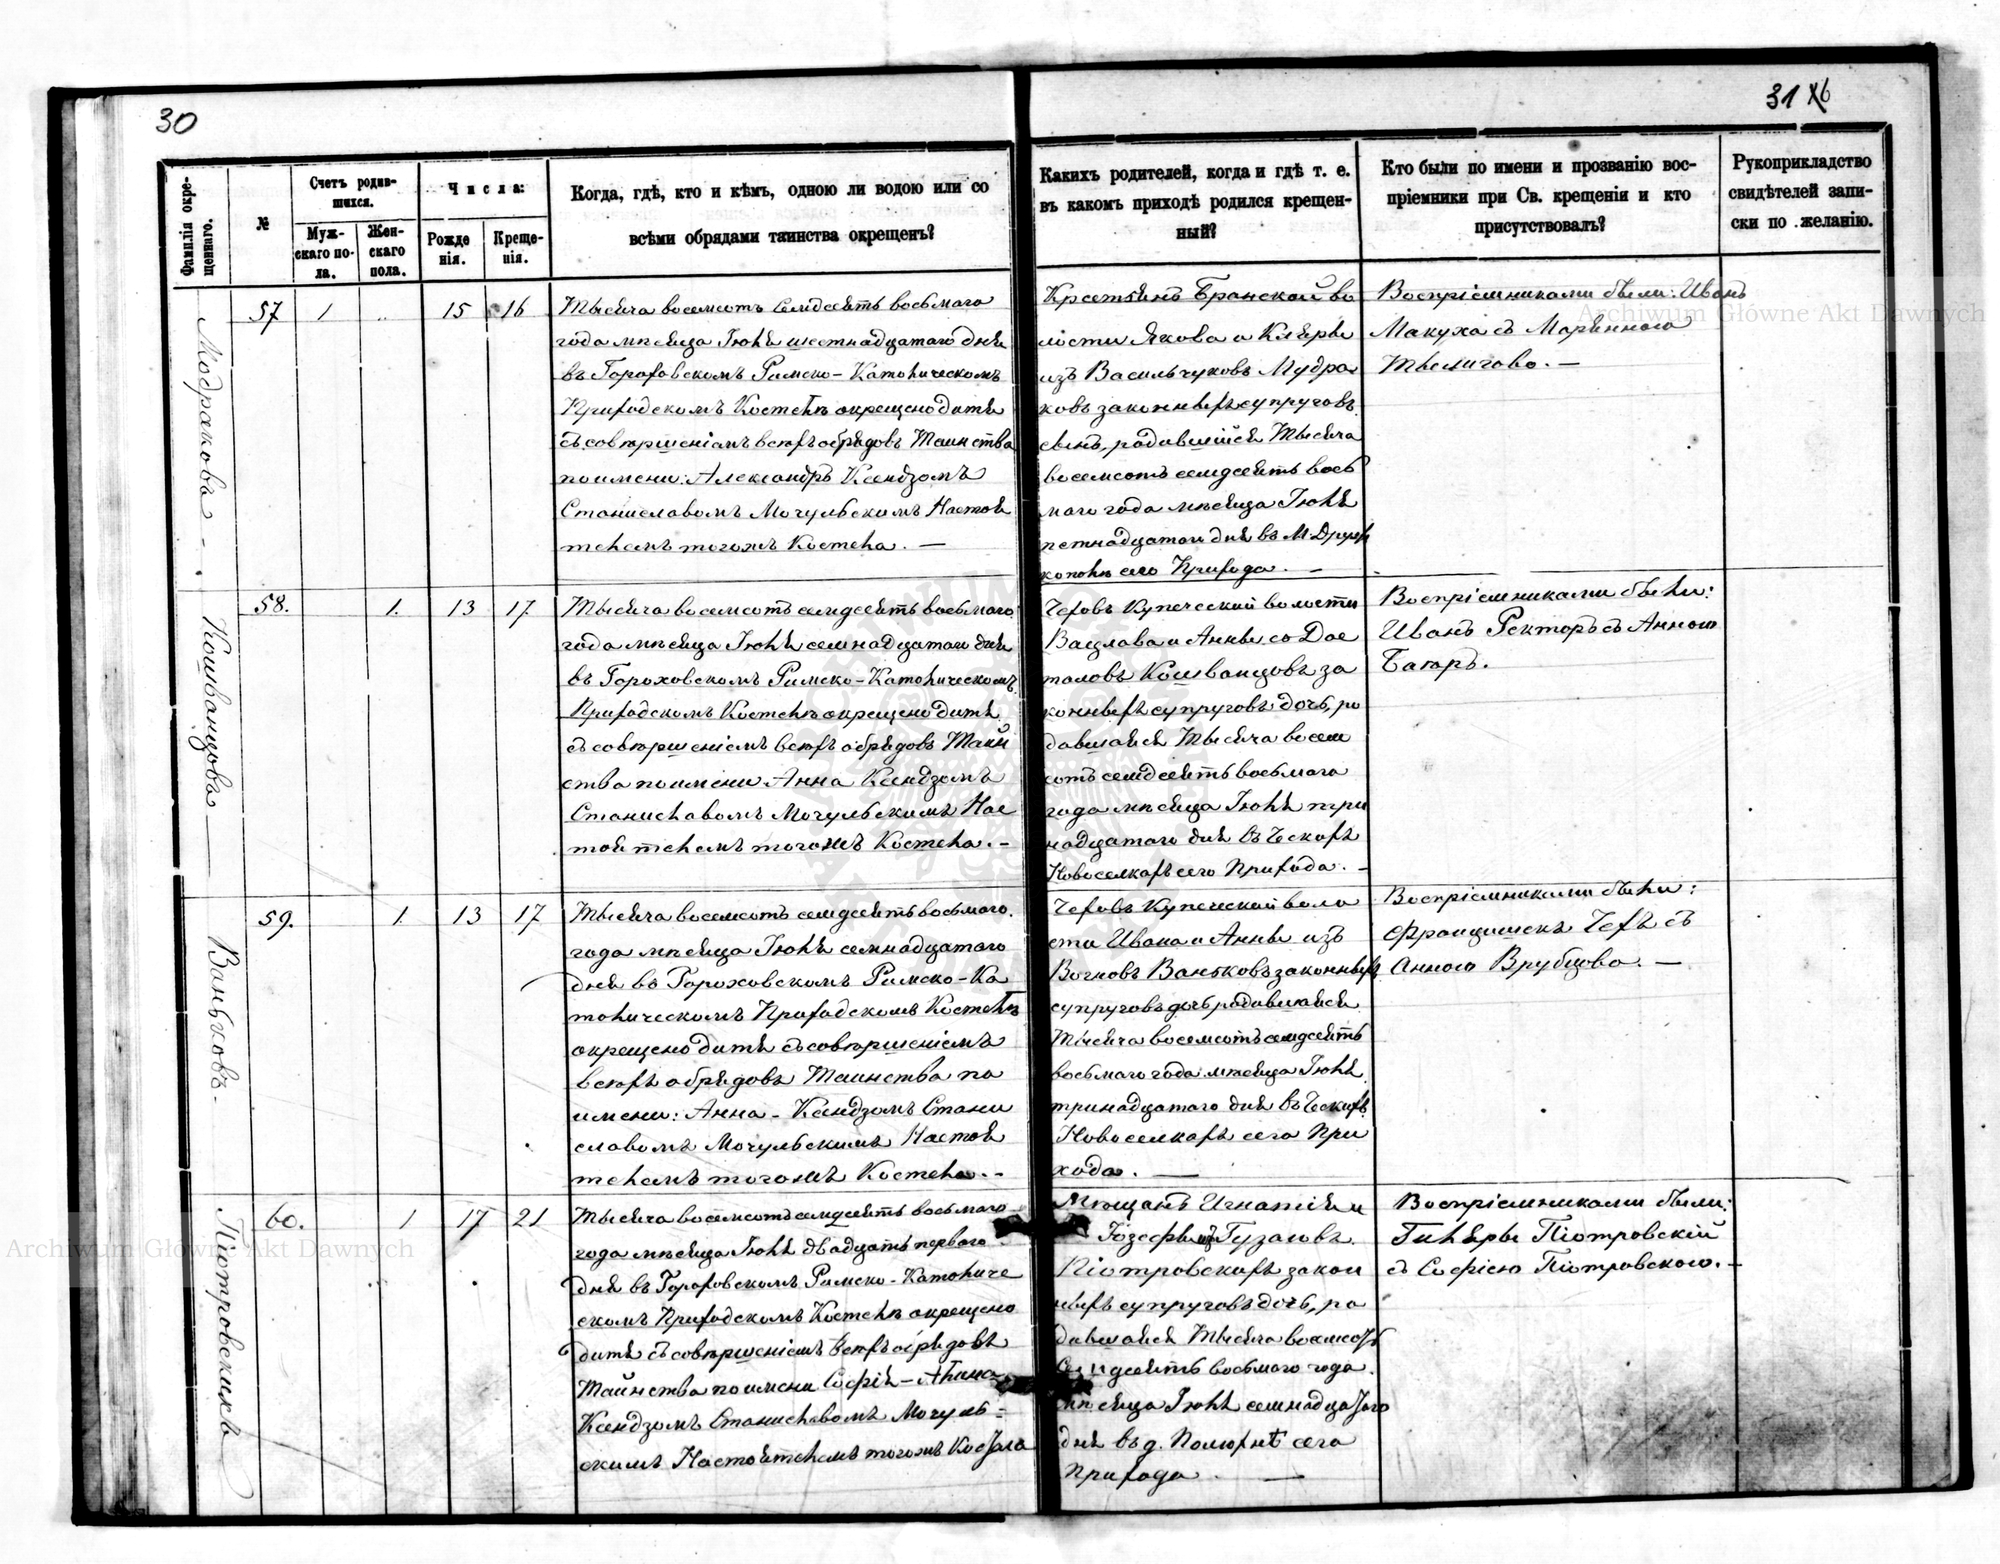 30
31
Фамилія окре-
щеннаго.
№
Счетъ родив-
шихся.
Муж-
скаго по-
ла.
Жен-
скаго
пола.
Числа:
Рожде
нія.
Креще-
нія.
Когда, гдѣ, кто и кѣмъ, одною ли водою или со
всѣми обрядами таинства окрещенъ?
Какихъ родителей, когда и гдѣ т. е.
въ какомъ приходѣ родился крещен-
ный?
Кто были по имени и прозванію вос-
пріемники при Св. крещеніи и кто
присутствовалъ?
Рукоприкладство
свидѣтелей запи-
ски по желанію.
Модракова -
57 1 15 16
Тысяча восемсотъ семдесятъ восьмаго
года мѣсяца Іюля шестнадцатаго дня
въ Гороховскомъ Римско-Католическомъ
Приходскомъ Костелѣ окрещено дитя
съ совершеніемъ всѣхъ обрядовъ Таинства
по имени: Александръ Ксендзомъ
Станиславомъ Мочульскимъ Настоя
телемъ тогожъ Костела. —
Крестьянъ Бранской во
лости Якова и Кляры
изъ Васильчуковъ Мудра
ковъ законныхъ супруговъ
сынъ, родившійся Тысяча
восемсотъ семдесятъ вось
маго года мѣсяца Іюля
петнадцатаго дня въ М. Друж
кополь сего Прихода. —
Воспріемниками были: Иванъ
Макуха съ Марянною
Archiwum Główne Akt Dawnych
Кошванцова —
58. 1. 13 17
Тысяча восемсотъ семдесятъ восьмаго
года мѣсяца Іюля семнадцатаго дня
въ Гороховскомъ Римско-Католическомъ
Приходскомъ Костелѣ окрещено дитя
съ совершеніемъ всѣхъ обрядовъ Таин
ства по имени Анна Ксендзомъ
Станиславомъ Мочульскимъ Нас
тоятелемъ тогожъ Костела. —
Чеховъ Купеческий волости
Вацлава и Анны со Дос
таловъ Кошванцовъ за
конныхъ супруговъ дочь, ро
давшаяся Тысяча восем
сотъ семдесятъ восьмаго
года мѣсяца Іюля три
надцатаго дня въ Ческихъ
Новоселкахъ сего Прихода. —
Воспріемниками были:
Иванъ Ректоръ съ Анною
Багаръ.
Ваньковъ -
59. 1. 13 17
Тысяча восемсотъ семдесятъ восьмаго
года мѣсяца Іюля семнадцатаго
дня въ Гороховскомъ Римско-Ка
толическомъ Приходскомъ Костелѣ
окрещено дитя съ совершеніемъ
всѣхъ обрядовъ Таинства по
имени: Анна - Ксендзомъ Стани
славомъ Мочульскимъ Настоя
телемъ тогожъ Костела. —
Чеховъ Купеческий воло
сти Ивана и Анны изъ
Вочковъ Ваньковъ законныхъ
супруговъ дочь родившаяся
Тысяча восемсотъ семдесятъ
восьмаго года мѣсяца Іюля
тринадцатаго дня въ Ческихъ
Новоселкахъ сего При
хода. —
Воспріемниками были:
Францишекъ Чехъ съ
Анною Врубцова. —
Піотровскихъ
60. 1 17 21
Тысяча восемсотъ семдесятъ восьмаго
года мѣсяца Іюля двадцать перваго
дня въ Гороховскомъ Римско-Католиче
скомъ Приходскомъ Костелѣ окрещено
дитя съ совершеніемъ всѣхъ обрядовъ
Таинства по имени Софія - Анна
Ксендзомъ Станиславомъ Мочуль-
скимъ Настоятелемъ тогожъ Костела
Мѣщанъ Игнатія и
Іозефы изъ Гузаговъ
Піотровскихъ закон
ныхъ супруговъ дочь, ро
дившаяся Тысяча восемсотъ
Семдесятъ восьмаго года
мѣсяца Іюля семнадцатаго
дня въ д. Полюхнѣ сего
Прихода —
Воспріемниками были:
Гиляры Піотровскій
съ Софіею Піотровскою. —
Archiwum Główne Akt Dawnych